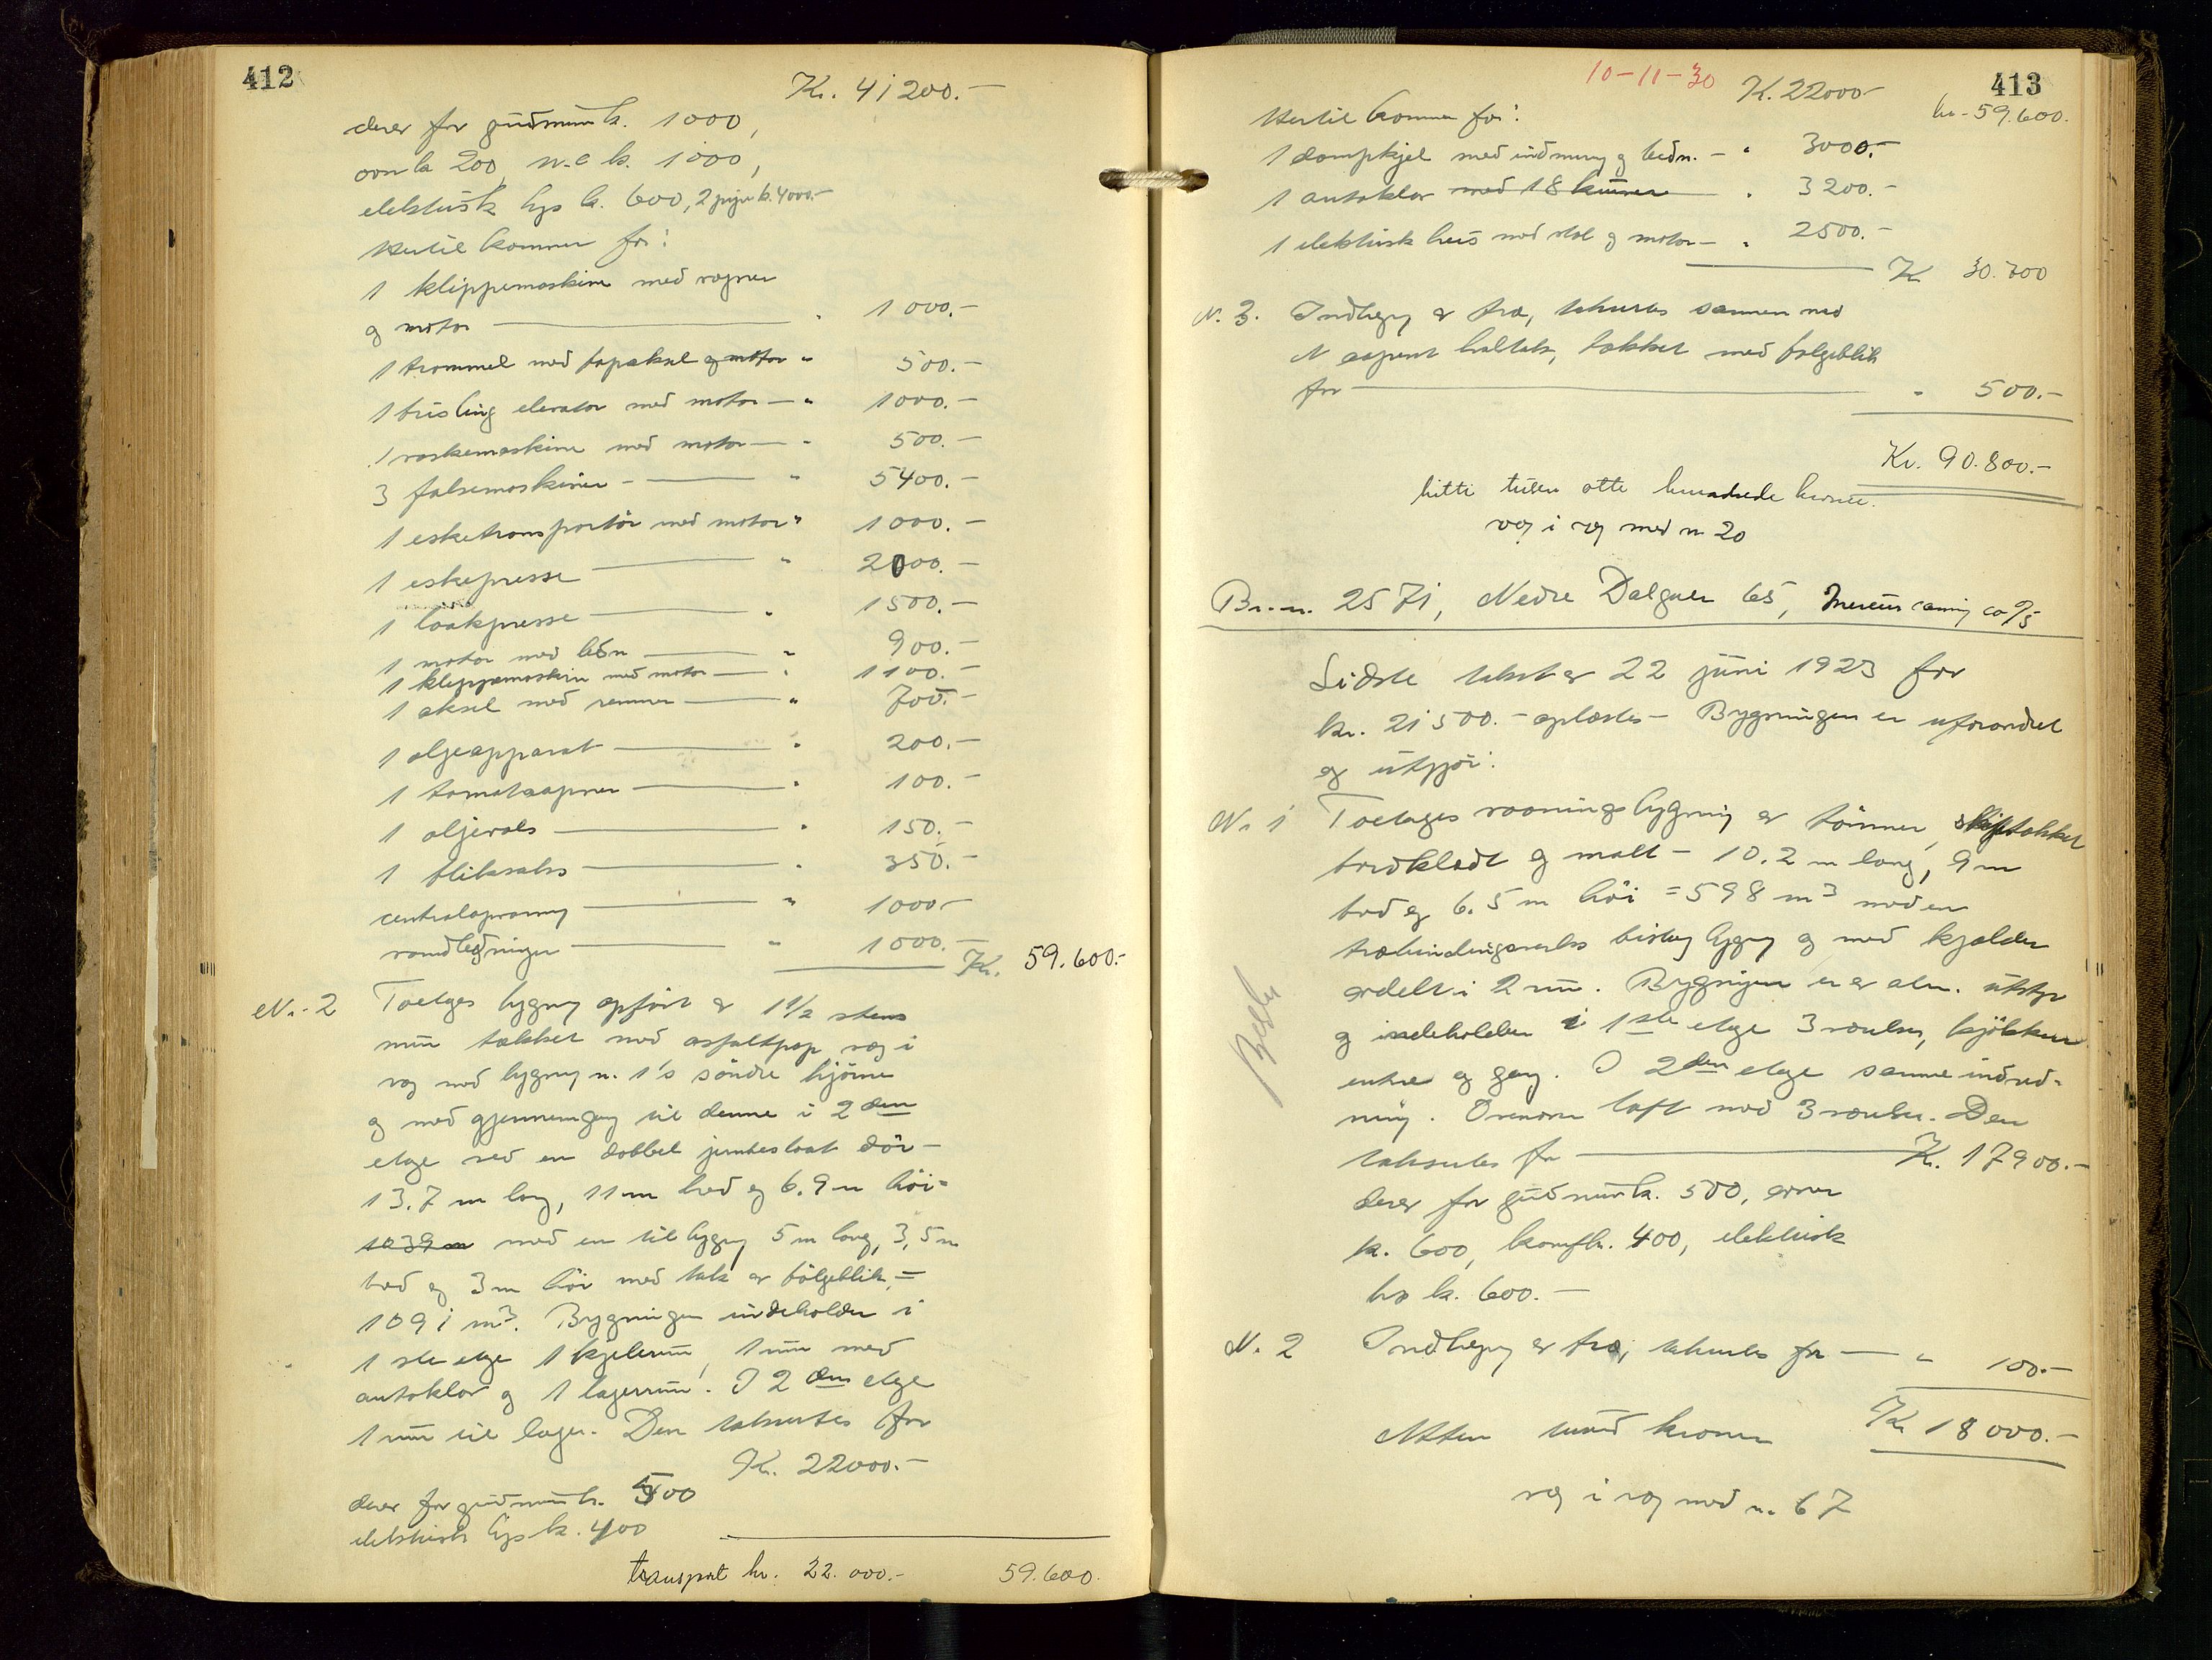 412
Kr. 41200.-
derav for grundmur k. 1000,
ovn k 200, w.c k. 1000,
elektrisk lys k. 600, 2 piper k. 4000.-
Hertil kommer for:
1 klippemaskine med vogner
og motor — " 1000.-
1 trommel med topaksel og motor " 500.-
1 brisling elevator med motor — " 1000.-
1 vaskemaskine med motor — " 500.-
3 falsemaskiner — " 5400.-
1 esketransportör med motor " 1000.-
1 eskepresse — " 2000.-
1 låakpresse — " 1500.-
1 motor med ledn — " 900.-
1 klippemaskin med motor — " 1100.-
1 aksel med remmer — " 700.-
1 oljeapparat — " 200.-
1 tomataapner — " 100.-
1 oljevals — " 150.-
1 blikvals — " 350.-
centralopvarmng — " 1000.-
vandledninger — " 1000.-
Kr. 59.600.-
N.-2 Toetages bygng opfört av 1 1/2 stens
mur tækket med asfaltpap væg i
væg med bygng n. 1's söndre hjörne
og med gjennemgang til denne i 2den
etage ved en dobbel jernbeslaat dör -
13.7 m lang, 11 m bred og 6.9 m höi =
1039 m med en tilbygng 5 m lang, 3,5 m
bred og 3 m höi med tak av bölgeblik =
1091 m3. Bygningen indeholder i
1ste etage 1 kjelerum, 1 rum med
autoklav og 1 lagerrum. I 2den etage
1 rum til lager. Den takseres for
Kr. 22000.-
derav for grundmur k. 500
elektrisk lys k. 400
transport kr. 22.000.- 59.600.
10-11-30 K. 22000- 413
kr. 59.600.
Hertil kommer for:
1 dampkjel med indmurng og ledn. - " 3000.-
1 autoklav med 18 kurver " 3200.-
1 elektrisk heis med stol og motor - " 2500.-
K 30.700
N. 3. Indhegng av træ, takseres sammen med
et aapent halvtak, tækket med bølgeblik
for — " 500.-
Kr. 90.800.-
nitti tusen otte hundrede kroner.
væg i væg med n 20
Br.-n. 2571, Nedre Dalgaten 65, canning co A/S
Sidste takst av 22 juni 1923 for
kr. 21500.- oplæstes - Bygningen er uforandret
og utgjör:
N. 1 Toetages vaaningsbygning av tömmer, skiftækket
bordklædt og malt - 10.2 m lang, 9 m
bred og 6.5 m höi = 598 m3 med en
bislag bygng og med kjælder
avdelt i 2 rum. Bygningen er av alm. utstyr
og indeholder i 1ste etage 3 værelser, kjökken
entre og gang. I 2den etage samme indred-
ning. Ovenover loft med 3 værelser. Den
takseres for — K. 17900.-
derav for grundmur k. 500, ovner
k. 600, komf k. 400, elektrisk
lys k. 600.-
N. 2 Indhegng av træ, takseres for — " 100.-
Kr 18000.-
Atten tusend kroner
væg i væg med n. 67